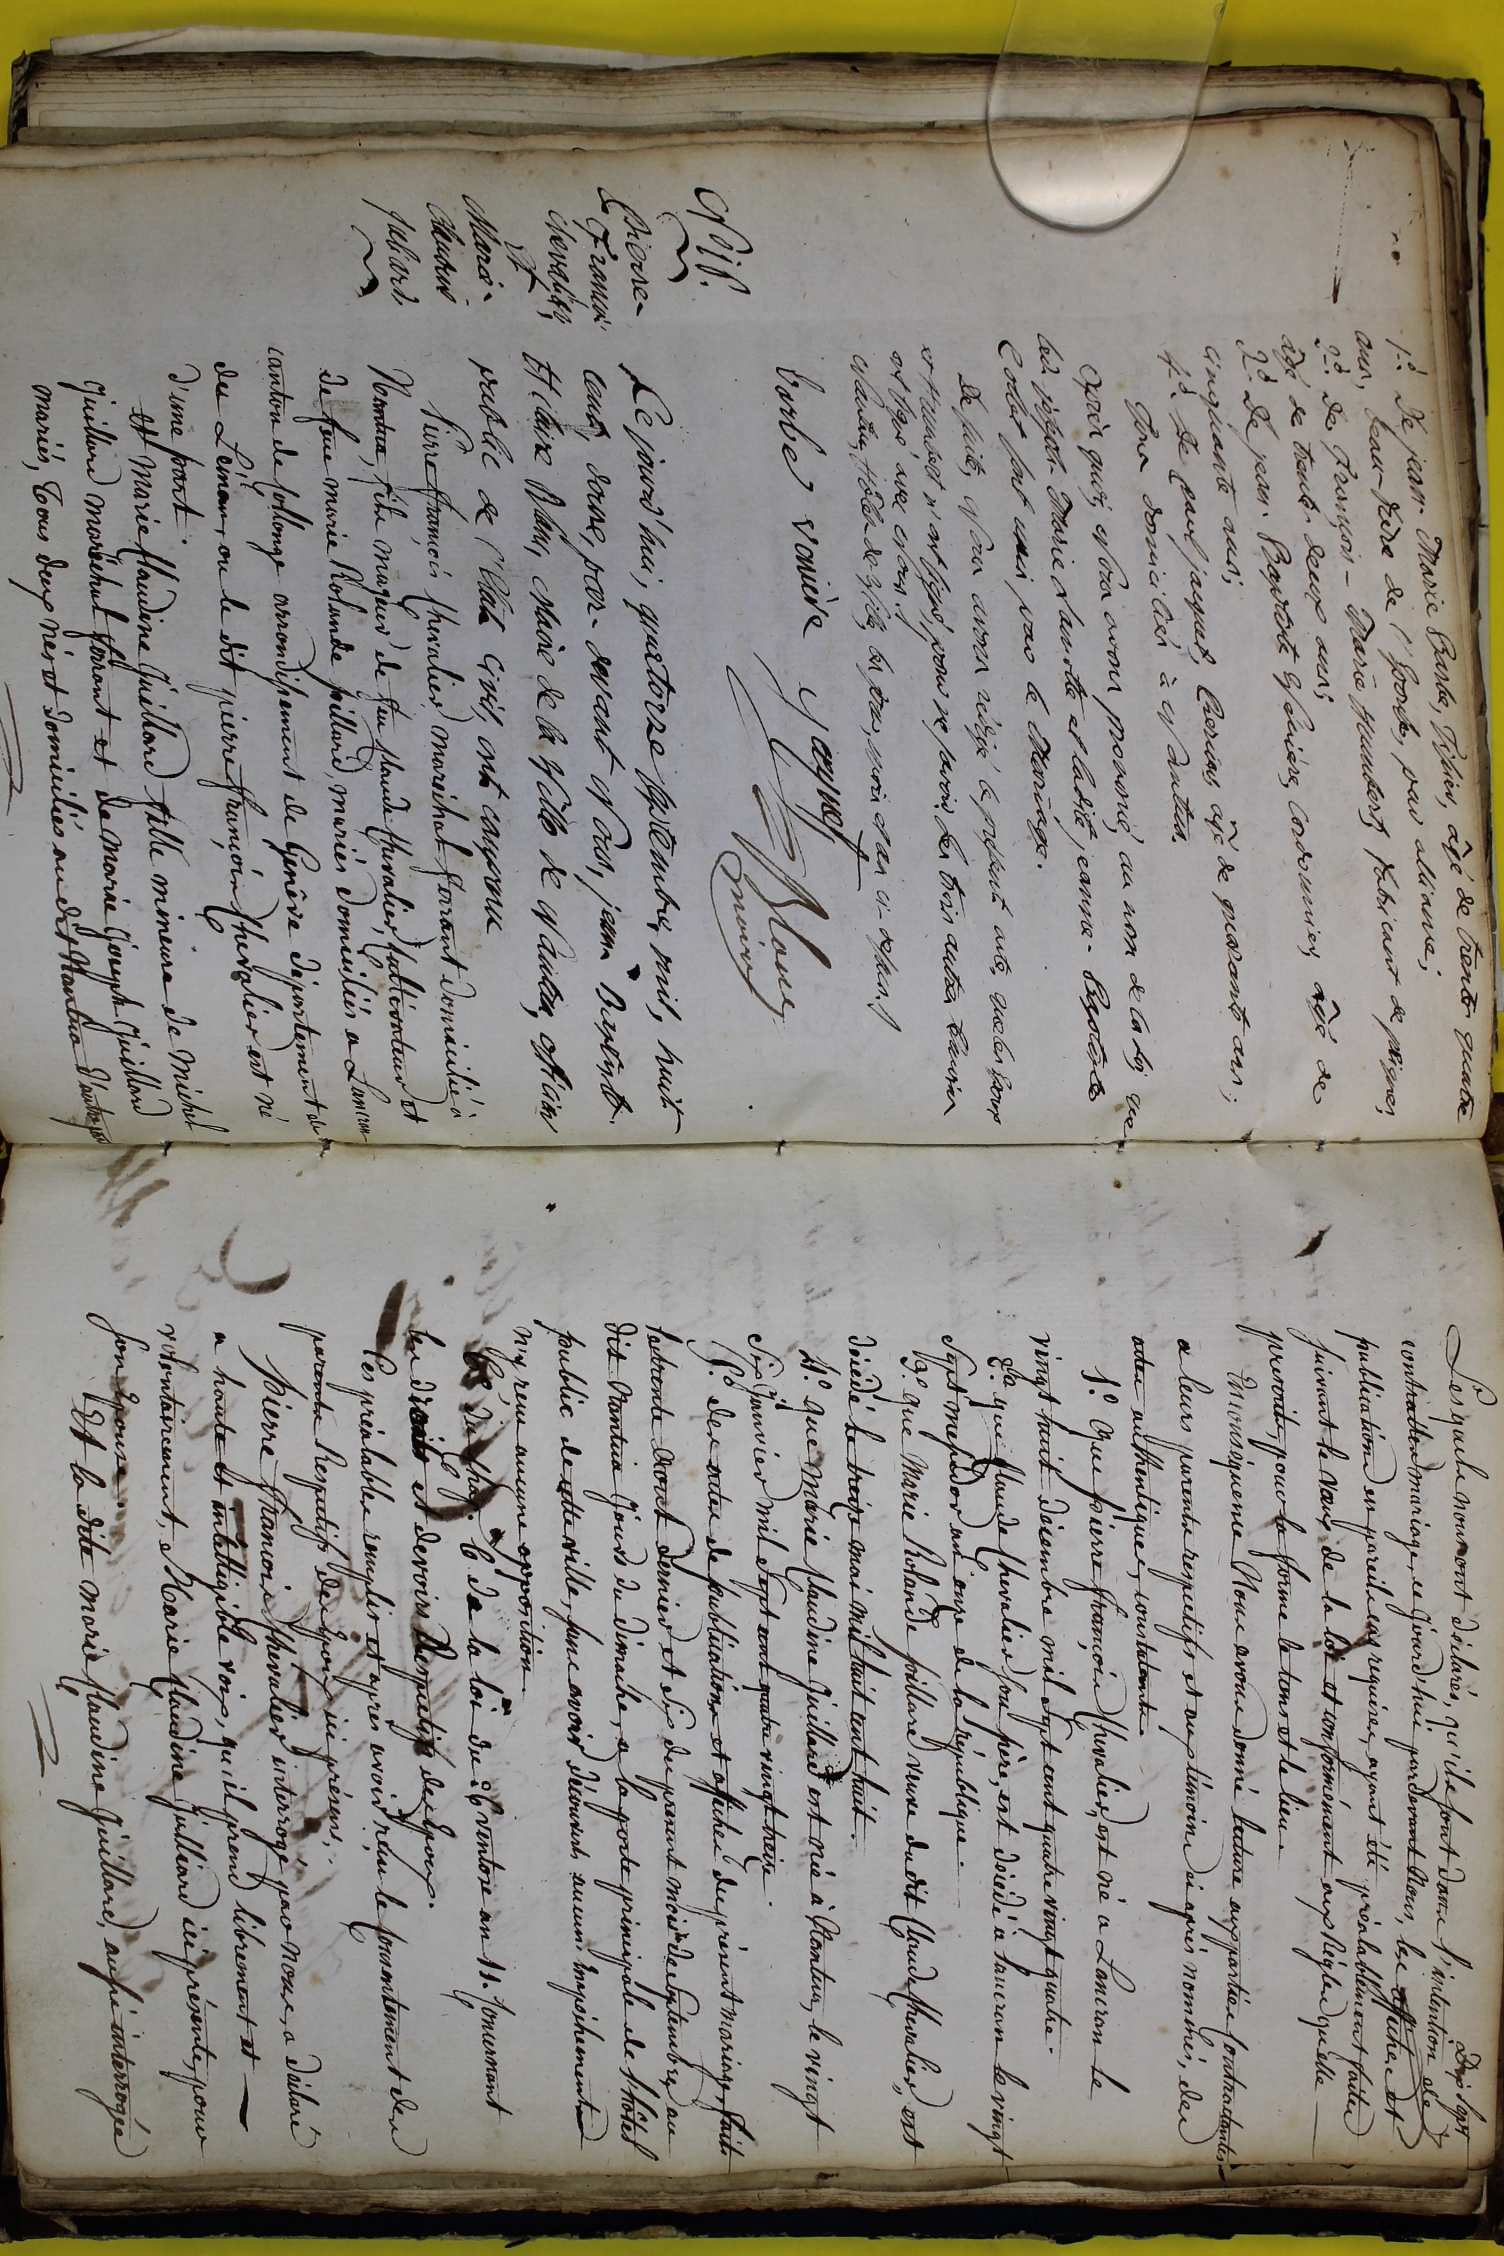 1º. De jean-Marie Barbe, âgé de trente quatre
ans, beau-frère de l'Epouse, par alliance;
2º. De François-Marie humbert, fabricant de peignes,
âgé de trente deux ans;
3º. De jean-Baptiste Cordonnier, âgé de
cinquante ans;
4º. De paul jacquet, âgé de quarante ans;
Tous domiciliés à Nantua.
Après quoi, Nous avons prononcé, au nom de la loi, que
led. joseph Marie et ladite, jeanne-Baptiste
sont unis par le Mariage.
De suite, Nous avons rédigé le présent acte,
et humbert n'ont signé, pour ne savoir, les trois autres témoins
ont signé, avec Nous;
Nantua, hôtel de Ville, les jour, mois et an ci-dessus.
barbe vaivre jacquet
maire
Nº 18.
Pierre
Francois
chevalier,
Et
Marie
Claudine
Juliard.
Le jourd'hui, quatorze Septembre, mil, huit
cent, douze, par-devant Nous, jean Baptiste
Hilaire maire de la Ville de Nantua, officier
public de l'Etat Civil, ont comparu
Pierre françois Chevalier maréchal ferrant domicilié à
Nantua, fils majeur de feu Claude Chevalier Cultivateur et
de feue marie Rolande poillard, mariés domiciliés a Lancran
canton de Collonge arrondissement de Genêve département du
du Léman, ou le dit pierre françois Chevalier est né
d'une part.
Et Marie Claudine Juillard fille mineure de Michel
Juillard maréchal ferrant et de Marie joseph Juillard
mariés, tous deux nés et domiciliés au dit Nantua d'autre part
Dix Sept
Lesquels nous ont déclaré, qu'ils sont dans l'intention de
contracter mariage, ce jourd'hui pardevant Nous, les affiches et
publications en pareil cas requises, ayant été préalablement faites
suivant le vœu de la loi et conformément aux Règles qu'elle
prescrits, pour la forme le tems et le lieu.
En conséquence Nous avons donné lecture aux parties Contractantes
a leurs parents respectifs et aux témoins ci après nommés, des
actes authentiques, constatants
1º. Que pierre françois Chevalier, est né a Lancran le
vingt huit décembre mil sept cent quatre vingt quatre.
2º. que Claude Chevalier Son père, est décédé à Lancran le vingt
Sept messidor an onze de la République.
3º. que Marie Rolande poillard veuve du dit Claude Chevalier, est
décédé le treize mai mil huit cent huit.
4º. que Marie Claudine Juillard est née à Nantua, le vingt
Six Janvier mil Sept cent quatre vingt treize.
5º. des actes de publications et affiches du présent mariage faits
le trente Août dernier et Six du présent mois de Septembre au
dit Nantua jours de dimanche, a la porte principale de l'hôtel
public de cette ville, sans avoir démontré aucun Empêchement
n'y reçu aucune opposition
6º. du Chap. 6 de la loi du 26 Ventose an 11. Concernant
les droits et devoirs Respectifs des Epoux.
Ces préalables remplis et après avoir reçu le Consentement des
parents Respectifs des Epoux, ici présens;
Pierre françois Chevalier interrogé par nous, a déclaré
a haute et intelligible voix, qu'il prend librement et
volontairement, Marie Claudine Juillard ici présente, pour
son Epouse.
Et la dite marie Claudine Juillard, aussi interrogée